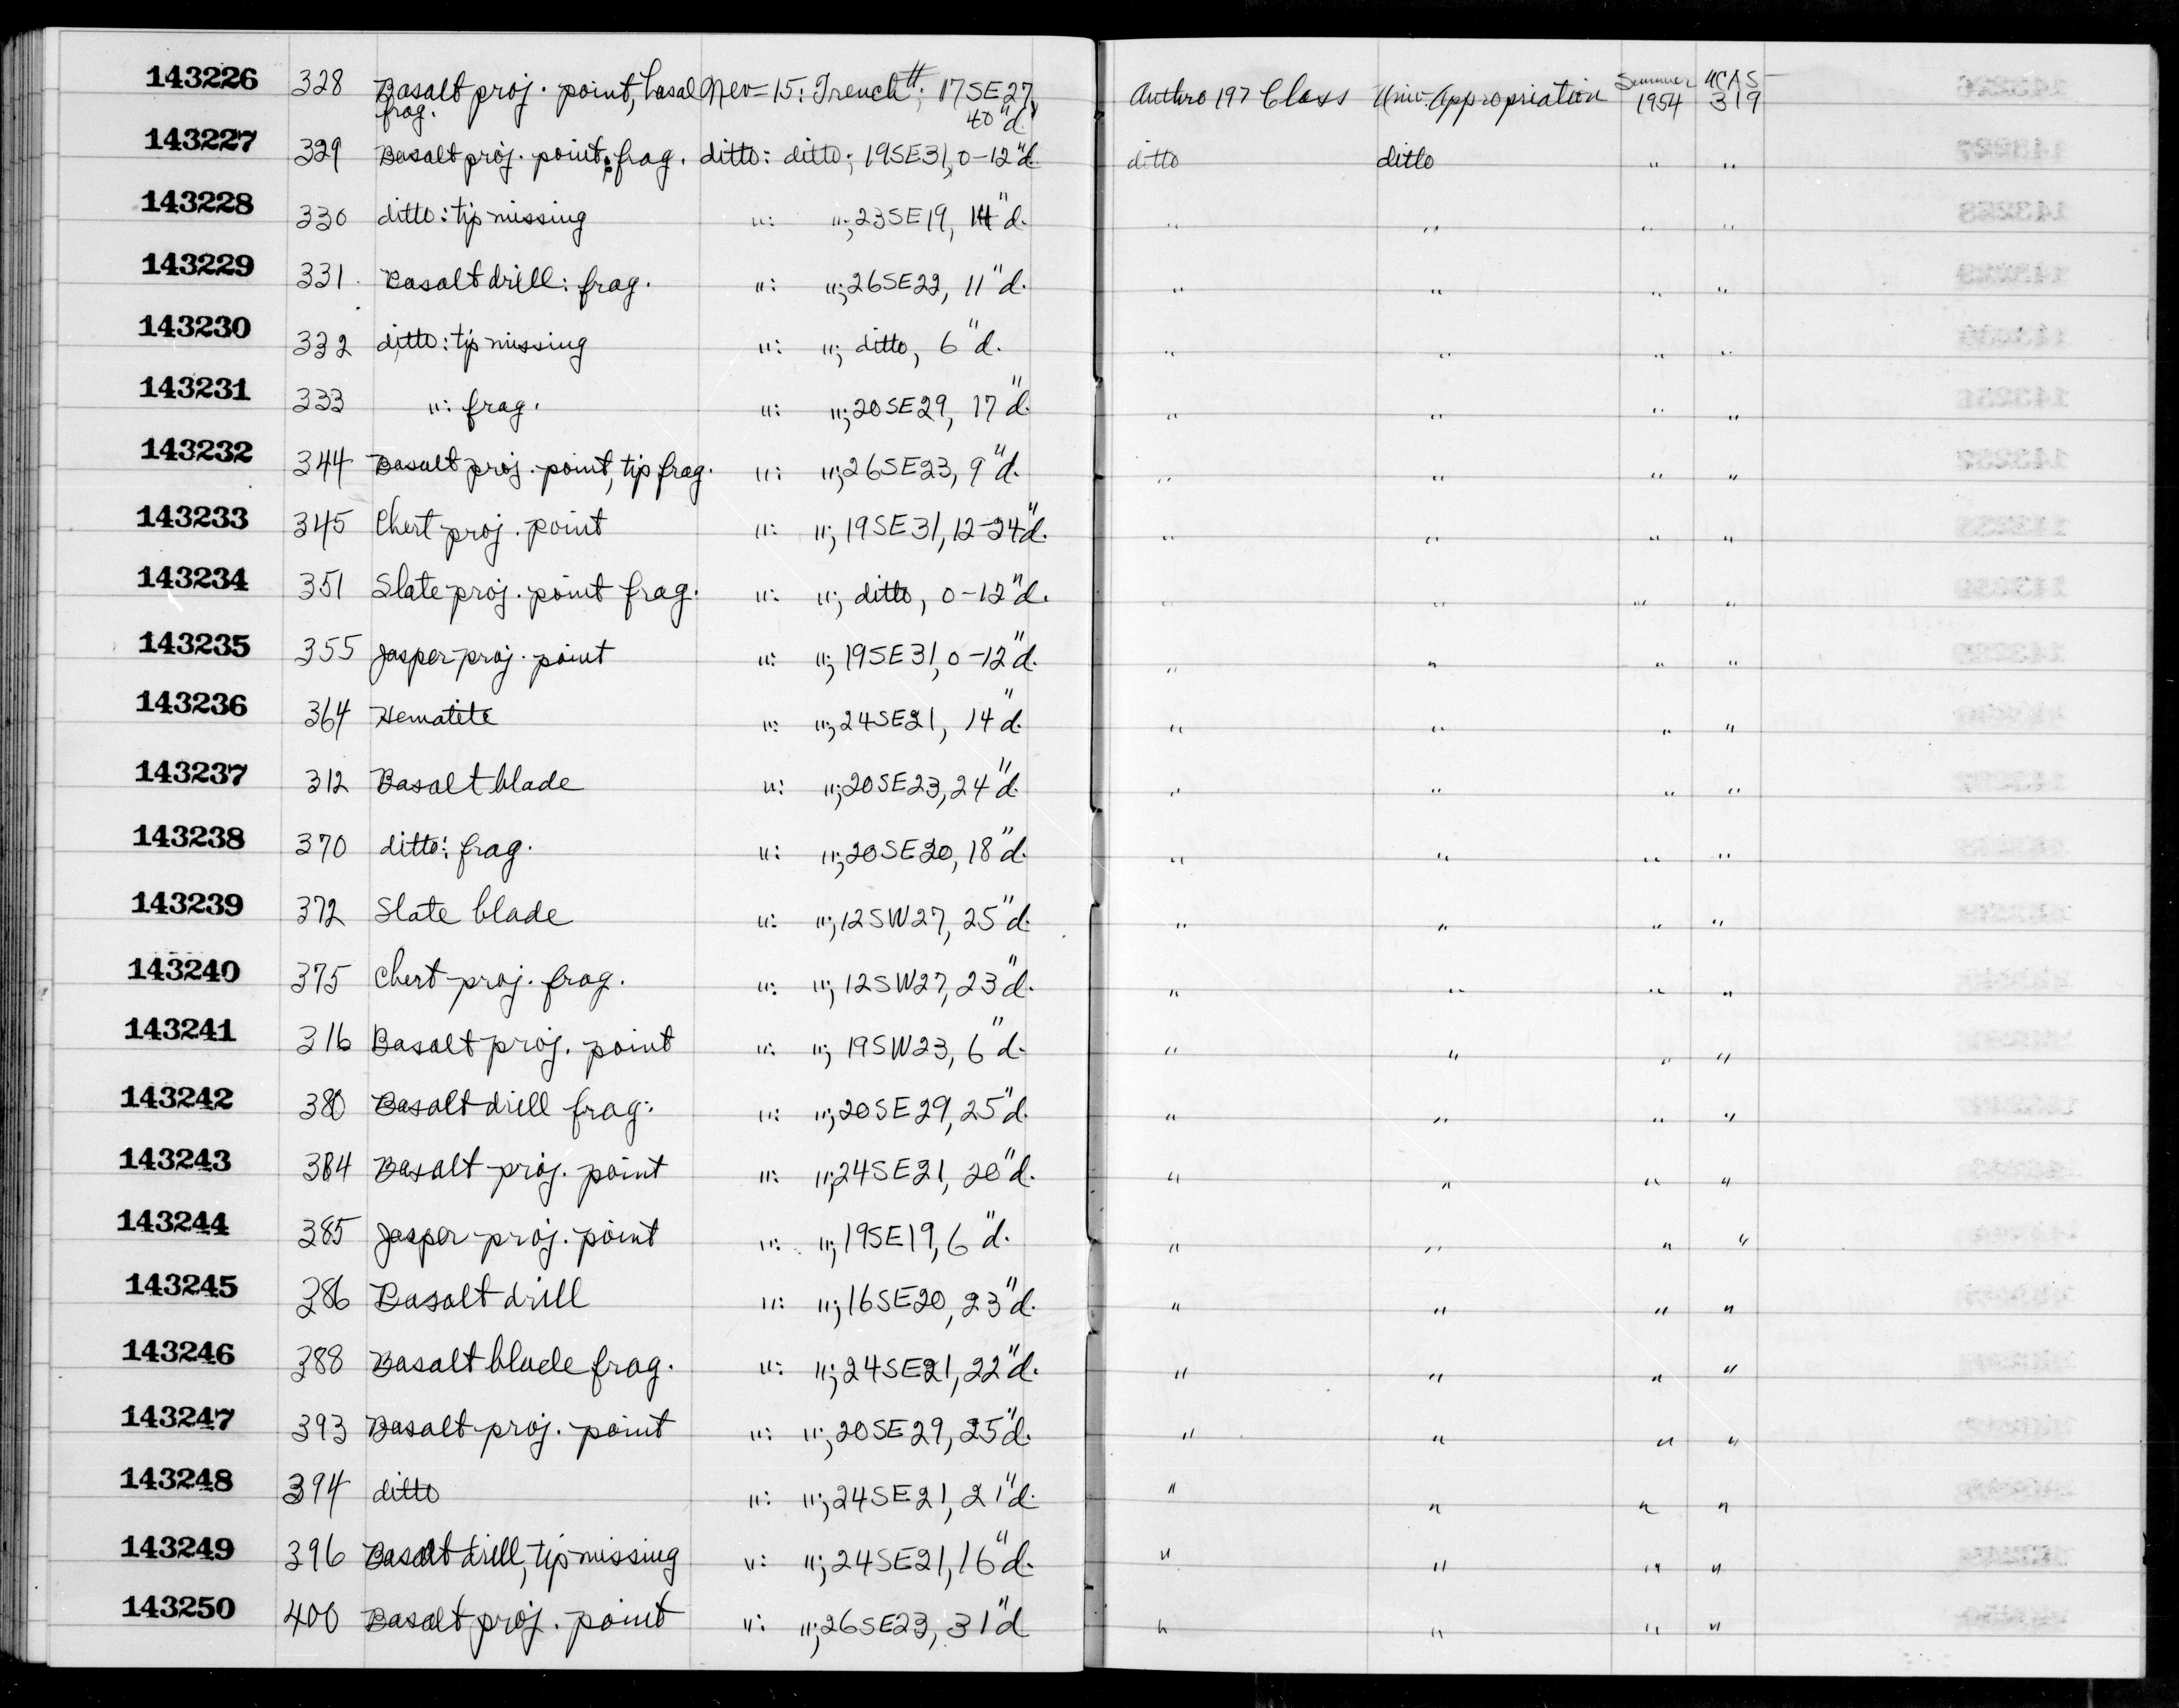 143226 328 Basalt proj. point, basal frag. Nev-15: Trench #; 17SE27, 40"d. Anthro 197 Class Univ. Appropriation Summer 1954 UCAS-319
143227 329 Basalt proj. point: frag. ditto: ditto; 19SE31, 0-12"d. ditto ditto " "
143228 330 ditto: tip missing ": "; 23SE19, "d. " " " "
143229 331 Basalt drill: frag. ": "; 26SE22, 11"d. " " " "
143230 332 ditto: tip missing ": "; ditto, 6"d. " " " "
143231 333 ": frag. ": "; 20SE29, 17"d. " " " "
143232 344 Basalt proj. point, tip frag. ": "; 26SE23, 9"d. " " " "
143233 345 Chert proj. point ": "; 19SE31, 12-24"d. " " " "
143234 351 Slate proj. point frag. ": "; ditto, 0-12"d. " " " "
143235 355 Jasper proj. point ": "; 19SE31, 0-12"d. " " " "
143236 364 Hematite ": "; 24SE21, 14"d. " " " "
143237 312 Basalt blade ": "; 20SE23, 24"d. " " " "
143238 370 ditto: frag. ": "; 20SE20, 18"d. " " " "
143239 372 Slate blade ": "; 12SW27, 25"d. " " " "
143240 375 Chert proj. frag. ": "; 12SW27, 23"d. " " " "
143241 316 Basalt proj. point ": "; 19SW23, 6"d. " " " "
143242 380 Basalt drill frag. ": "; 20SE29, 25"d. " " " "
143243 384 Basalt proj. point ": "; 24SE21, 20"d. " " " "
143244 385 Jasper proj. point ": "; 19SE19, 6"d. " " " "
143245 386 Basalt drill ": "; 16SE20, 23"d. " " " "
143246 388 Basalt blade frag. ": "; 24SE21, 22"d. " " " "
143247 393 Basalt proj. point ": "; 20SE29, 25"d. " " " "
143248 394 ditto ": "; 24SE21, 21"d. " " " "
143249 396 Basalt drill, tip missing ": "; 24SE21, 16"d. " " " "
143250 400 Basalt proj. point ": "; 26SE23, 31"d " " " "